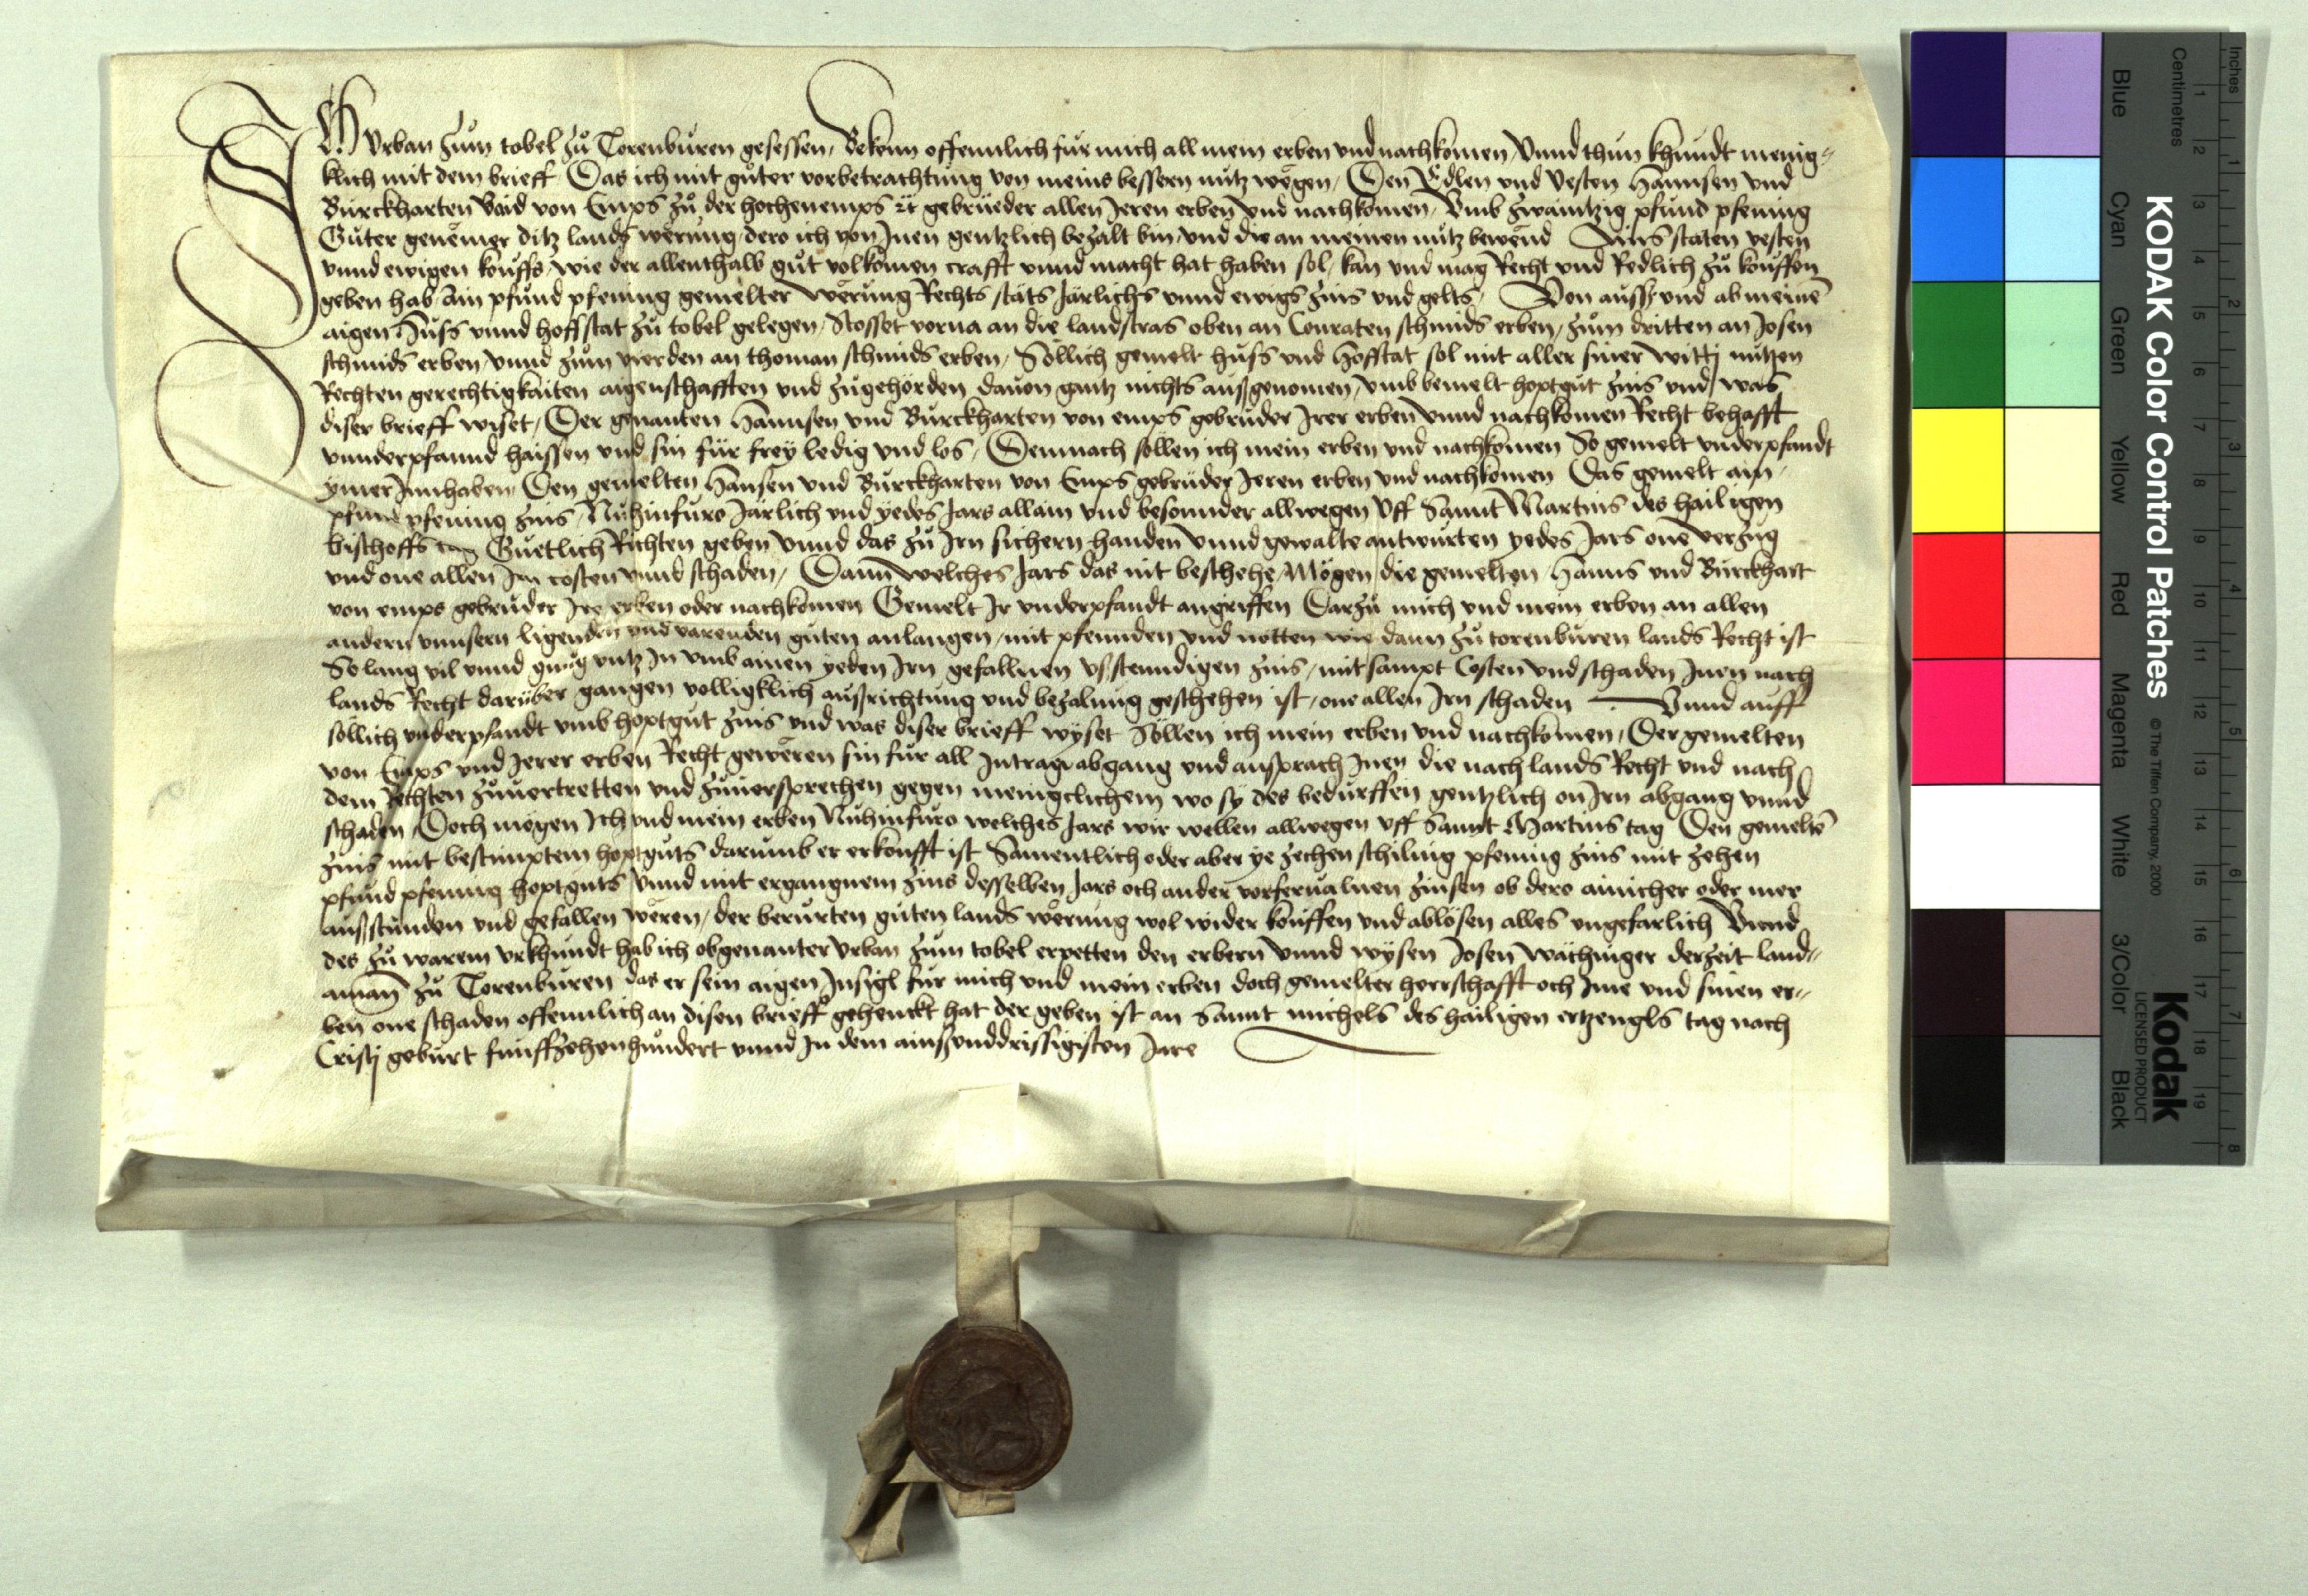 Ich Vrban zum tobel zů Torenburen gesessen, Bekenn offennlich für mich all mein erben vnd nachkomen, Vnnd thun khundt menig-
klich mit dem brieff Das ich mit guter vorbetrachtung von meins bessern nutz wegen, Den Edlen vnd Vesten Hannsen vnd
Burckharten Baid von Emps zů der hochenemps gebrueder allen Jeren erben vnd nachkomen, Vmb zwaintzig pfund pfening
Guter genemer ditz lands werung, dero ich von Inen gentzlich bezalt bin vnd die an meinen nutz bewend Ains staten vesten
vnnd ewigen kouffs, wie der allenthalb gut volkomen crafft vnnd macht hat haben sol, kan vnd mag Recht vnd Redlich zů kouffen
geben hab, Ain pfund pfening gemelter werung Rechts stäts Järlichs vnnd ewigs zins vnd gelts, Von auss vnd ab meinē
aigen Huss vnnd hoffstat zů tobel gelegen, Stosset vorna an die landstras oben an Conraten schmids erben, zum dritten an Josen
schmids erben, vnnd zum vierden an thoman schmids erben, Söllich gemelt huss vnd Hofstat sol mit aller siner witti nutzen
Rechten gerechtigkaiten aigenschafften vnd zugehörden dauon gantz nichts aussgenomen, vmb bemelt hoptgut zins vnd was
diser brieff wiset, Der genanten Hannsen vnd Burckharten von emps gebruder Irer erben vnnd nachkomen Recht behafft
vnnderpfannd haissen vnd sin für frey ledig vnd los, Demnach söllen ich mein erben vnd nachkomen So gemelt vnderpfandt
ymer Innhaben, Den gemelten Hansen vnd Burckharten von Emps gebrüder Jeren erben vnd nachkomen Das gemelt ain
pfund pfening zins, Nuhinfuro Järlich vnd yedes Jars allain vnd besonnder allwegen Vff Sannt Martins des hailigen
bischoffs tag Guetlich Richten geben vnnd das zů Irn sichern handen vnnd gewalte antwurten yedes Jars one verzug
vnd one allen Irn costen vnnd schaden, Dann welches Jars das nit beschehe, Mögen die gemelten Hanns vnd Burckhart
von emps gebruder Ire erben oder nachkomen Gemelt Ir vnderpfandt angriffen Darzů mich vnd mein erben an allen
andern vnnsern ligenden vnd varenden guten anlangen, mit pfennden vnd nötten wie dann zů torenburen lands Recht ist
So lang vil vnnd gnug vntz In vmb ainen yeden Irn gefallnen vsstenndigen zins, mit sampt Costen vnd schaden Inen nach
lands Recht darüber gangen volligklich aussrichtung vnd bezalung geschehen ist, one allen Irn schaden Vnnd auff
söllich vnderpfandt vmb hoptgut zins vnd was diser brieff wyset Söllen ich mein erben vnd nachkomen, Der gemelten
von Emps vnd Jerer erben Recht geweren sin für all Intrag abgang vnd ansprach Inen die nach lands Recht vnd nach
dem Rechten zuuertretten vnd zuuersprechen gegen menigclichem wo sy des bedurffen gentzlich on Irn abgang vnnd
schaden, Doch mögen Ich vnd mein erben Nuhinfuro welches Jars wir wellen allwegen vff Sannt Martins tag Den gemeltē
zins mit bestimptem hoptguts darumb er erkoufft ist Samentlich oder aber ye zechen schilling pfening zins mit zehen
pfund pfening hoptguts vnnd mit ergangnem zins desselben Jars och ander vorferualnen zinsen ob dero ainicher oder mer
aussstunden vnd gefallen weren, der berurten guten lands werung wol wider kouffen vnd ablösen alles vngefarlich Vnnd
des zů warem vrkhundt hab ich obgenanter Vrban zum tobel erpetten den erbern vnnd wysen Josen Wächinger derzeit land-
aman zů Torenburen das er sein aigen Insigl für mich vnd mein erben doch gemelter herrschafft och Ime vnd sinen er-
ben one schaden offennlich an disen brieff gehenckt hat der geben ist an Sannt michels des hailigen ertzengls tag nach
Cristj geburt funffzehenhundert vnnd In dem ainsvnddrissigisten Jare
KODAK Color Control Patches © The Tiffen Company, 2000
Kodak
LICENSED PRODUCT
Blue Cyan Green Yellow Red Magenta White 3/Color Black
Inches 1 2 3 4 5 6 7 8
Centimetres 1 2 3 4 5 6 7 8 9 10 11 12 13 14 15 16 17 18 19